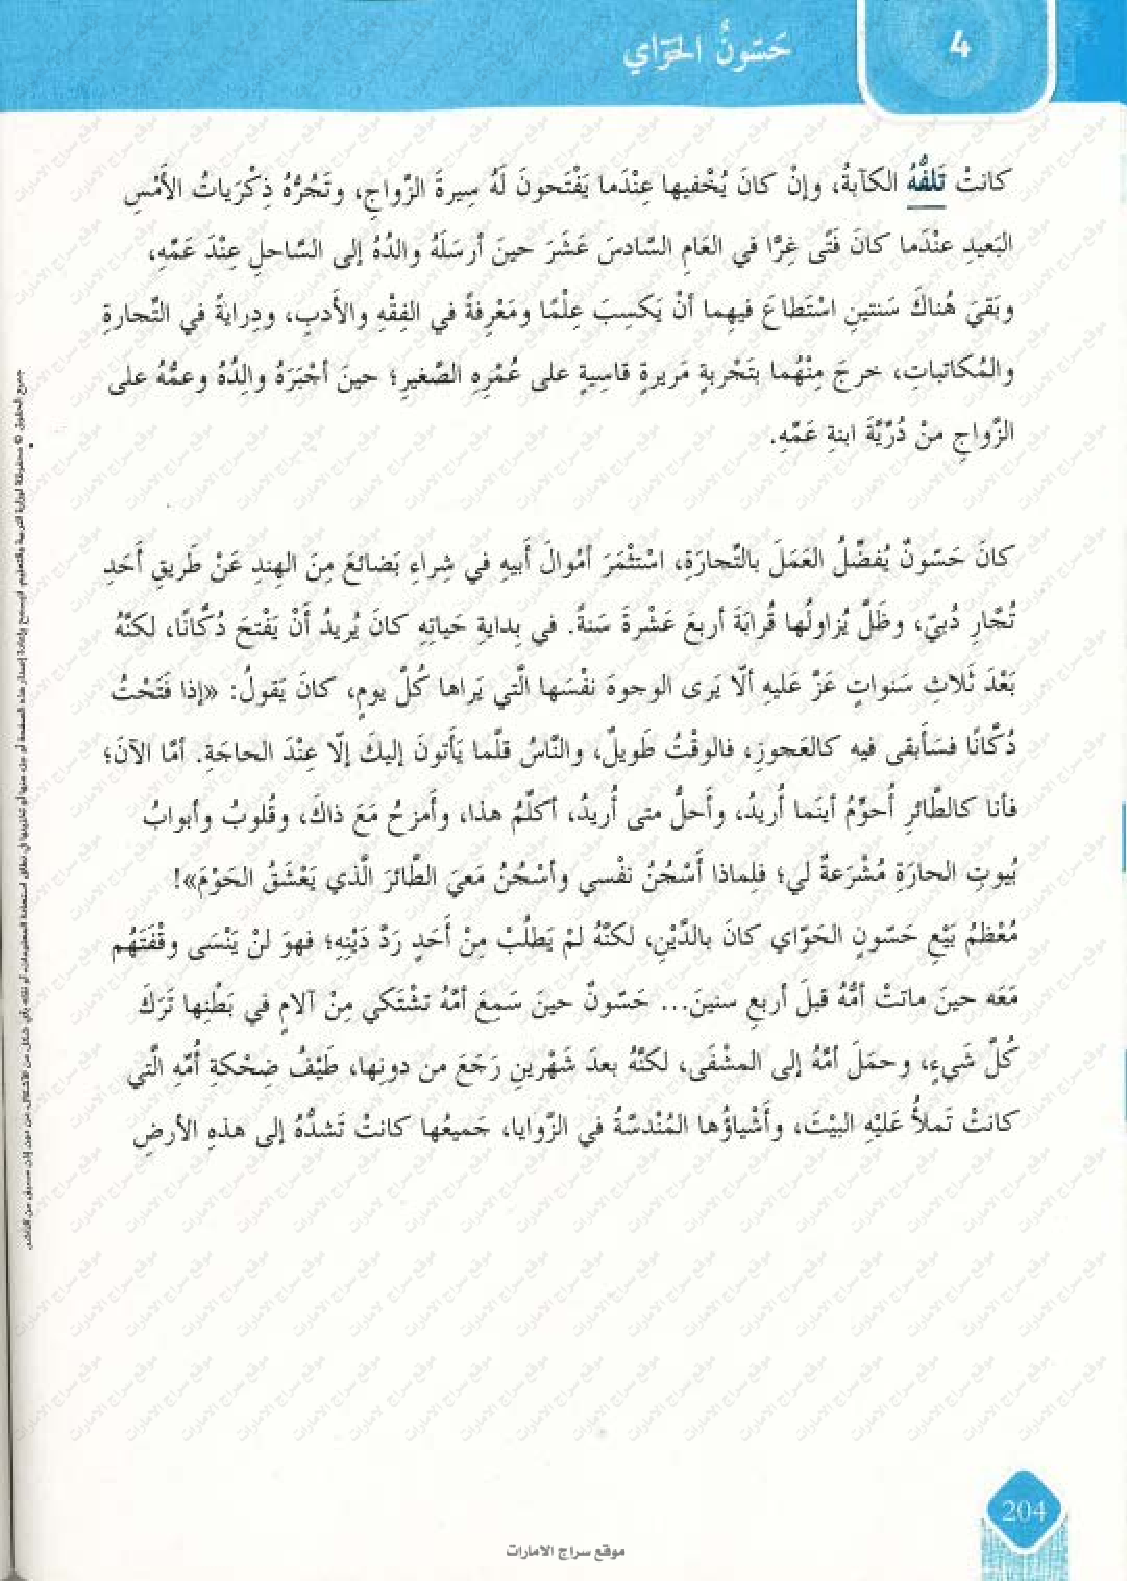 4
حَسّونٌ الحَوّاي
كانتْ تَلفُّهُ الكآبةُ، وإنْ كانَ يُخْفيها عِنْدَما يَفْتَحونَ لَهُ سِيرةَ الزّواجِ، وتَجُرُّهُ ذِكْرَياتُ الأَمْسِ
البَعيدِ عنْدَما كانَ فَتًى غِرًّا في العَامِ السّادسَ عَشَرَ حينَ أرسَلَهُ والدُهُ إلى السّاحلِ عِنْدَ عَمّهِ،
وبَقيَ هُناكَ سَنتينِ اسْتَطاعَ فيهِما أنْ يَكسِبَ عِلْمًا ومَعْرِفةً في الفِقْهِ والأَدبِ، ودِرايةً في التّجارةِ
والمُكاتباتِ، خرجَ مِنْهُما بتَجْربةٍ مَريرةٍ قاسِيةٍ على عُمْرِهِ الصّغيرِ؛ حينَ أجْبَرَهُ والِدُهُ وعمُّهُ على
الزّواجِ منْ دُرّيَّةَ ابنةِ عَمّهِ.
كانَ حَسّونٌ يُفضِّلُ العَمَلَ بالتّجارَةِ، اسْتثْمَرَ أمْوالَ أَبيهِ في شِراءِ بَضائعَ مِنَ الهِندِ عَنْ طَريقِ أحَدِ
تُجّارِ دُبيّ، وظَلَّ يُزاولُها قُرابَةَ أربعَ عَشْرةَ سَنةً. في بِدايةِ حَياتِهِ كانَ يُريدُ أَنْ يَفْتحَ دُكّانًا، لكنّهُ
بَعْدَ ثَلاثِ سَنواتٍ عَزَّ عَليهِ ألّا يَرى الوجوهَ نفْسَها الَّتي يَراها كُلّ يومٍ، كانَ يَقولُ: «إذا فَتَحْتُ
دُكّانًا فسَأَبقى فيه كالعَجوزِ، فالوقْتُ طَويلٌ، والنّاسُ قلَّما يَأتونَ إليكَ إلّا عِنْدَ الحاجَةِ. أمّا الآنَ؛
فأنا كالطّائرِ أُحوّمُ أينَما أُريدُ، وأَحلُّ متى أُريدُ، أكلّمُ هذا، وأَمزحُ مَعَ ذاكَ، وقُلوبُ وأبوابُ
بُيوتِ الحارَةِ مُشْرَعةٌ لي؛ فلِماذا أَسْجُنُ نفْسي وأسْجُنُ مَعيَ الطّائرَ الَّذي يَعْشَقُ الحَوْمَ»!
مُعْظمُ بَيْعِ حَسّونٍ الحَوّاي كانَ بالدَّيْنِ، لكنّهُ لمْ يَطلُبْ مِنْ أحَدٍ رَدَّ دَيْنِهِ؛ فهوَ لنْ يَنْسَى وقْفَتَهُم
مَعَه حينَ ماتتْ أمُّهُ قبلَ أربعِ سنينَ... حَسّونٌ حينَ سَمِعَ أمَّهُ تشْتَكي مِنْ آلامٍ في بَطْنِها تَرَكَ
كُلَّ شَيءٍ، وحمَلَ أمَّهُ إلى المشْفَى، لكنّهُ بعدَ شَهْرينِ رَجَعَ من دونِها، طَيْفُ ضِحْكةِ أُمّهِ الَّتي
كانتْ تَملأُ عَليْهِ البيْتَ، وأَشْياؤُها المُنْدسّةُ في الزّوايا، جَميعُها كانتْ تَشدُّهُ إلى هذهِ الأرضِ
204
موقع سراج الامارات